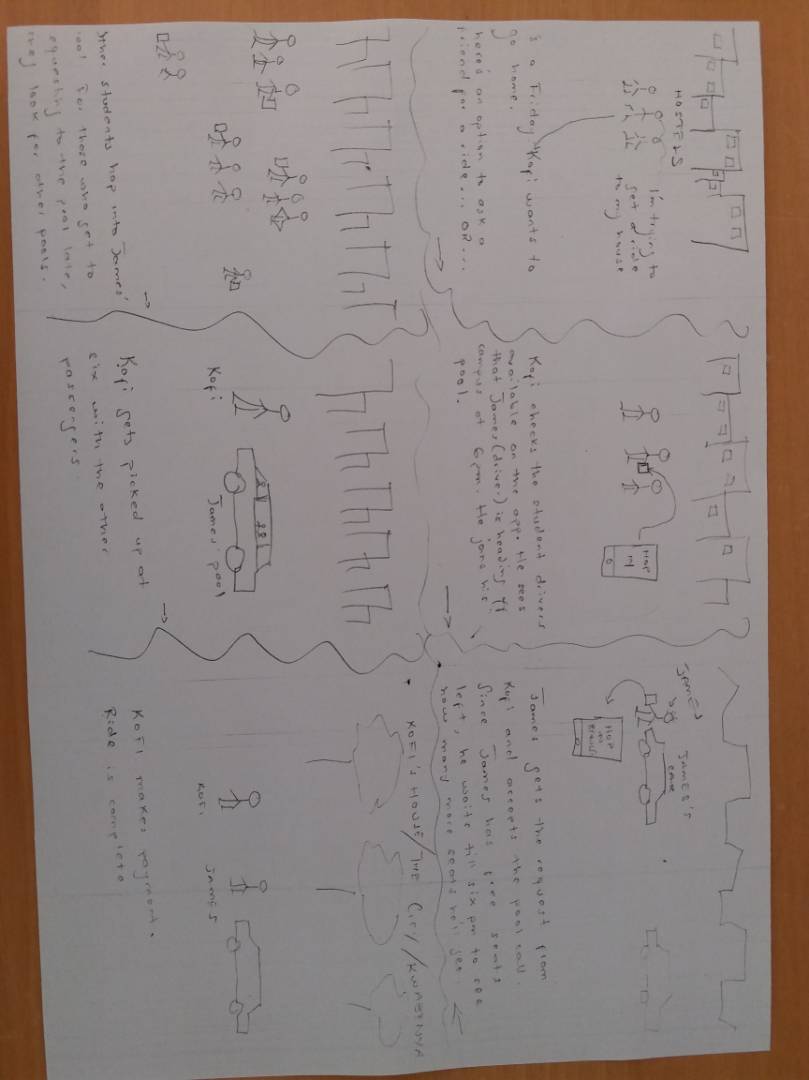 HOSTELS
I'm trying to
get a ride
to my house
s a Friday Kofi wants to
go home.
here's an option to ask a
friend for a ride... OR...
HOP
IN
Kofi checks the student drivers
available on the app. He sees
that James (driver) is heading off
campus at 6pm. He joins his
pool.
JAMES
JAMES'S
CAR
HOP
James gets the request from
Kofi and accepts the pool call.
Since James has free seats
left, he waits till six pm to see
how many more seats he'll get.
ther students hop into James'
ool. For those who get to
equesting to the pool late,
they look for other pools.
Kofi
James' pool
Kofi gets picked up at
six with the other
passengers.
KOFI'S HOUSE/THE CITY/KWABENYA
KOFI
JAMES
KOFI makes payment.
Ride is complete